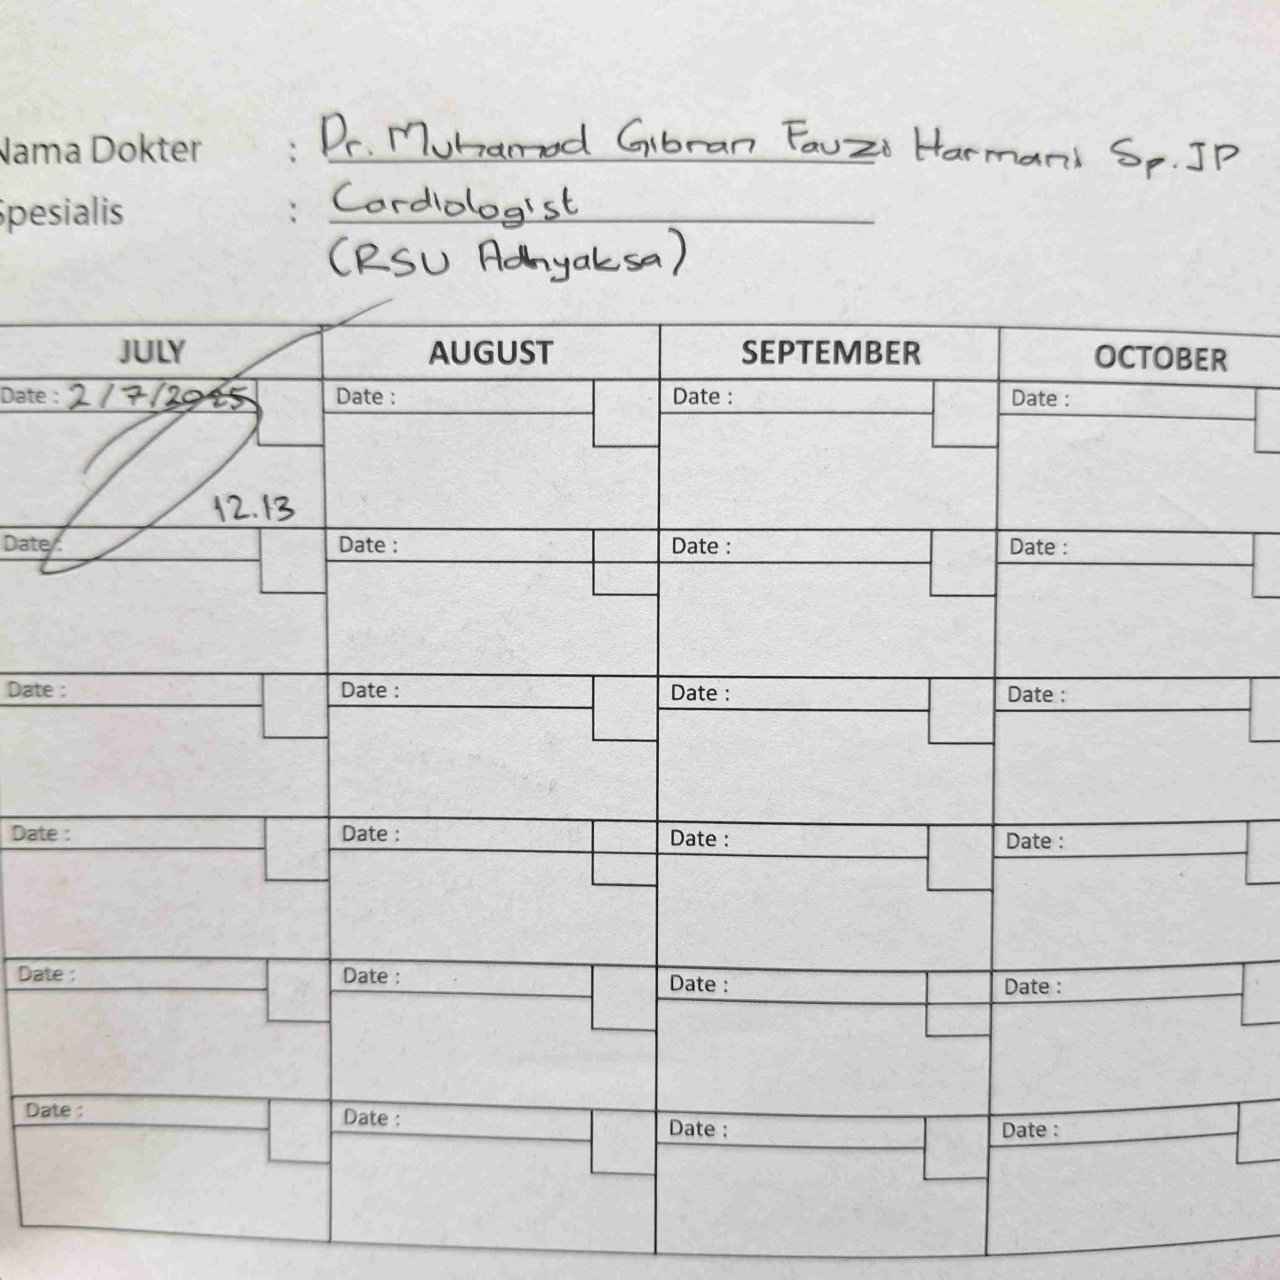 Nama Dokter : Dr. Muhamad Gibran Fauzi Harmani Sp.JP
Spesialis : Cardiologist
(RSU Adhyaksa)
JULY AUGUST SEPTEMBER OCTOBER
Date : 2/7/2025 Date : Date : Date :
12.13
Date : Date : Date : Date :
Date : Date : Date : Date :
Date : Date : Date : Date :
Date : Date : Date : Date :
Date : Date : Date : Date :